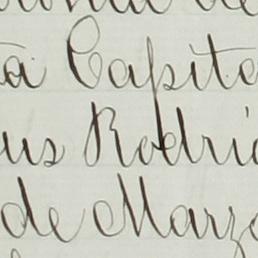 ta Capito
us Rodri
de Marzo